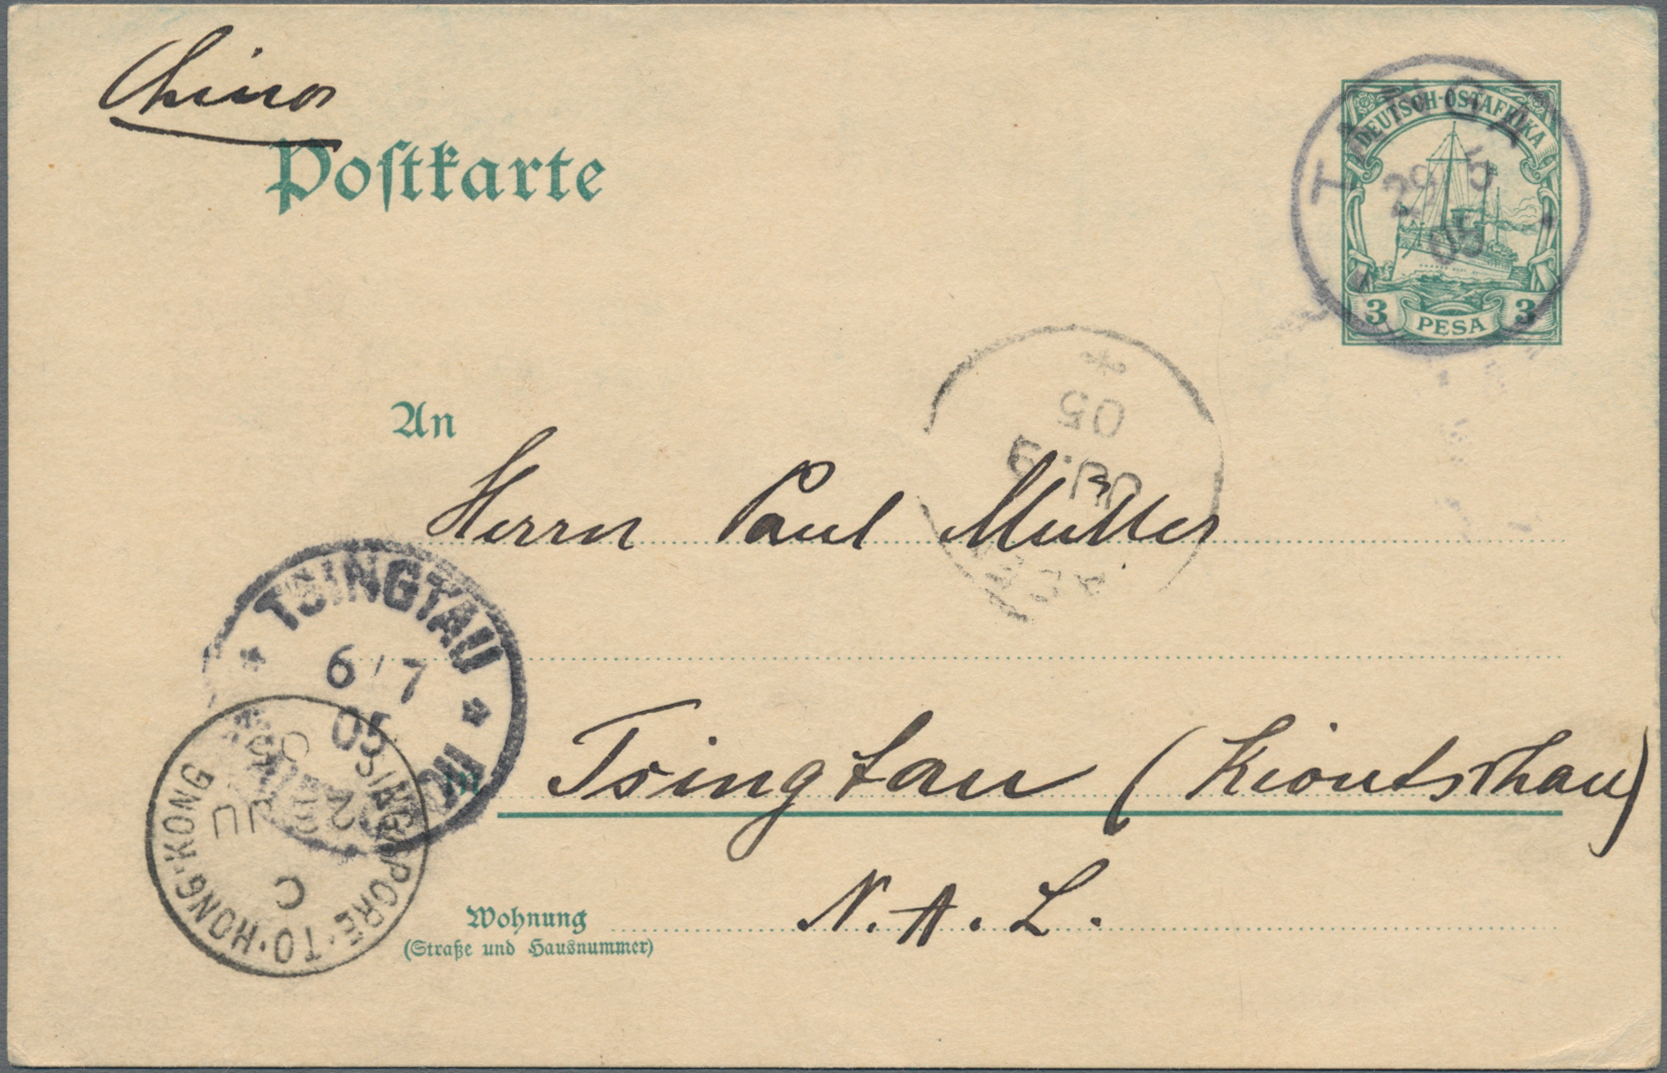 China
Postkarte
DEUTSCH-OSTAFRIKA
3 PESA 3
TANGA
29/5
05
An
JU. 9
05
Herrn Paul Müller
TSINGTAU
6/7
05
Tsingtau (Kiontshau)
SINGAPORE·TO·HONG-KONG
C
JU
N. A. L.
Wohnung
(Straße und Hausnummer)